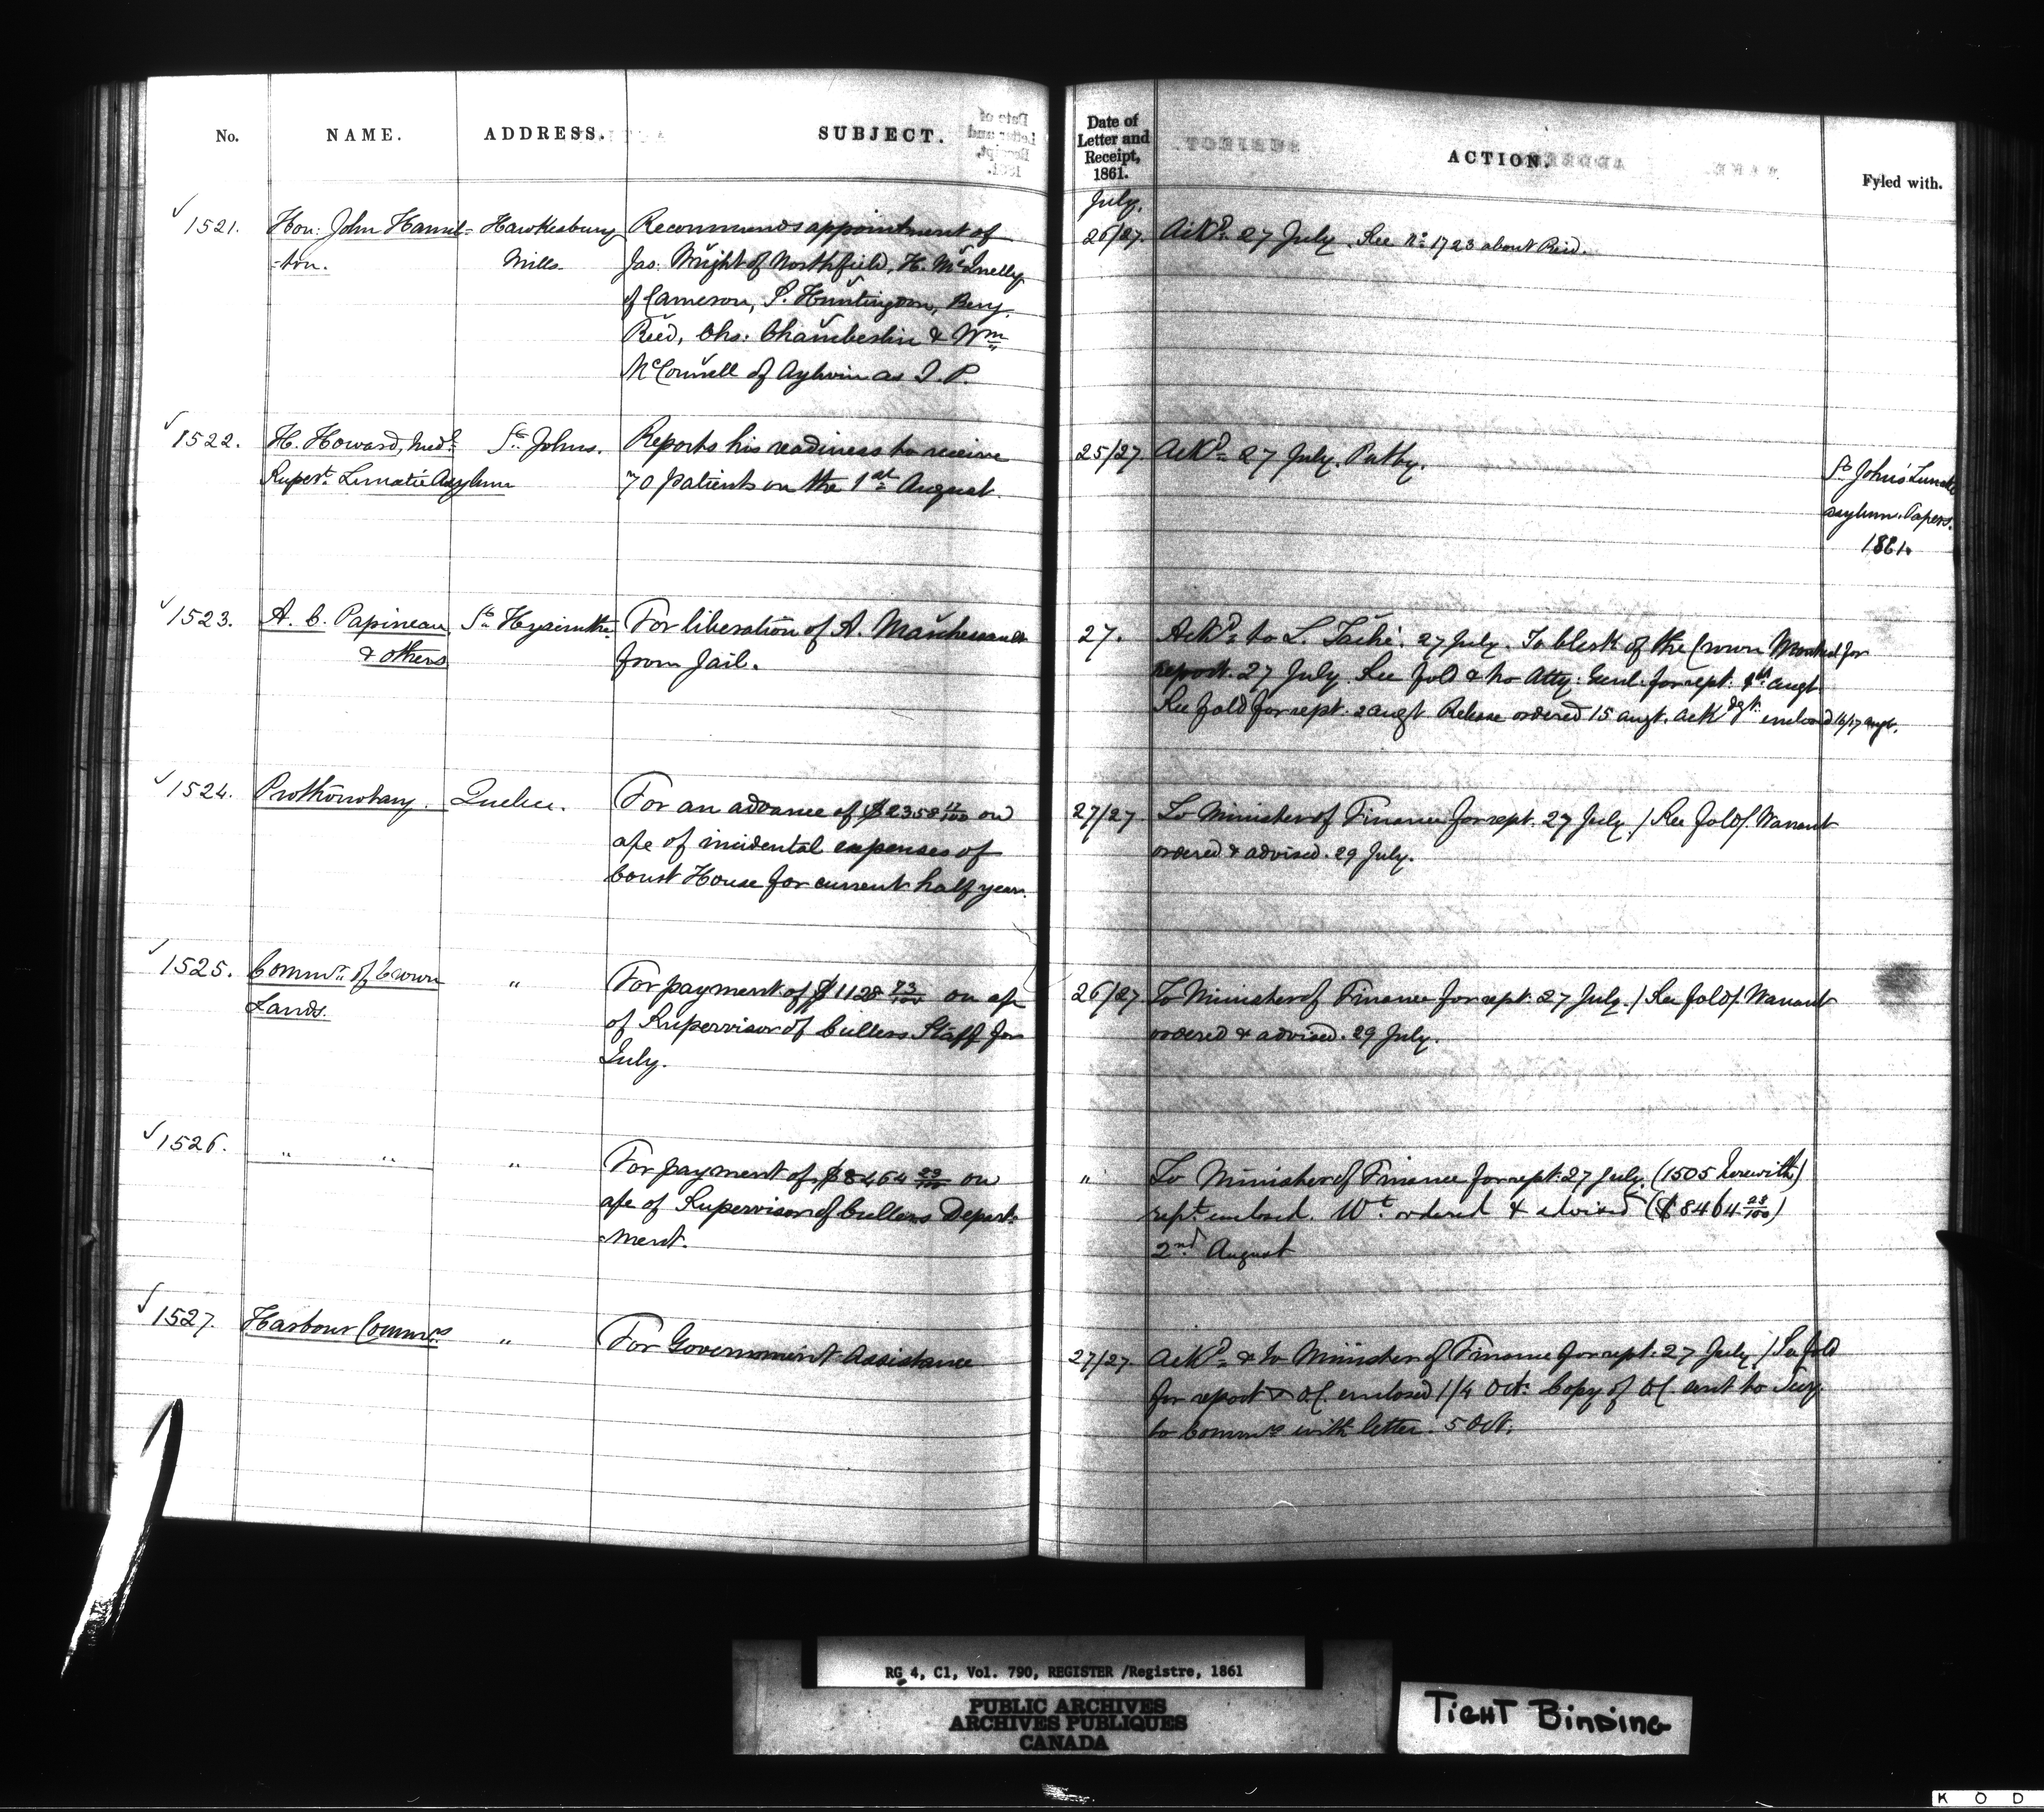 No. NAME. ADDRESS. SUBJECT.
Date of Letter and Receipt, 1861. ACTION. Fyled with.
July.
1521. Hon: John Hamil- Hawkesbury Recommends appointment of
-ton. Mills. Jas. Wright of Northfield, H.
of Cameron, S. Huntington, Benj.
Reid, Chs. Chamberlin & Wm
McConnell of Aylwin as J. P.
26/27. Ackd 27 July. See No 1723 about Reid.
1522. H. Howard, Medl St Johns. Reports his readiness to receive
Supert. Lunatic Asylum 70 patients on the 1st August.
25/27 Ackd 27 July. Put by.
St John's Lunatic
Asylum Papers.
1861.
1523. A. C. Papineau St Hyacinthe For liberation of A. Marchessault
& others from Jail.
27. Ackd to L. Taché. 27 July. To Clerk of the Crown Montreal for
report. 27 July. See fold & to Atty. Genl. for rept. 1st augt
See fold for rept. 2 augt Release ordered 15 augt. ackdgt. enclosed 16/17 augt.
1524. Prothonotary. Quebec. For an advance of $2358 on
a/c of incidental expenses of
Court House for current half year.
27/27 To Minister of Finance for rept. 27 July / See fold/. Warrant
ordered & advised. 29 July.
1525. Commr. of Crown " For payment of $1128 73/100 on a/c
Lands. of Supervisor of Cullers Staff for
July.
26/27 To Minister of Finance for rept. 27 July. / See fold/. Warrant
ordered & advised. 29 July.
1526. " " " For payment of $8464 23/100 on
a/c of Supervisor of Cullers Depart-
ment.
" To Minister of Finance for rept. 27 July. (1505 herewith)
rept. enclosed. Wt. ordered & advised ($8464 23/100)
2nd August
1527. Harbour Commrs " For Government Assistance
27/27. Ackd & to Minister of Finance for rept. 27 July / See fold
for report & O/C. enclosed 1/4 Oct. Copy of O/C. sent to Secy
to Commrs with letter. 5 Oct.
RG 4, C1, Vol. 790, REGISTER /Registre, 1861
PUBLIC ARCHIVES
ARCHIVES PUBLIQUES
CANADA
TIGHT BINDING
K O D